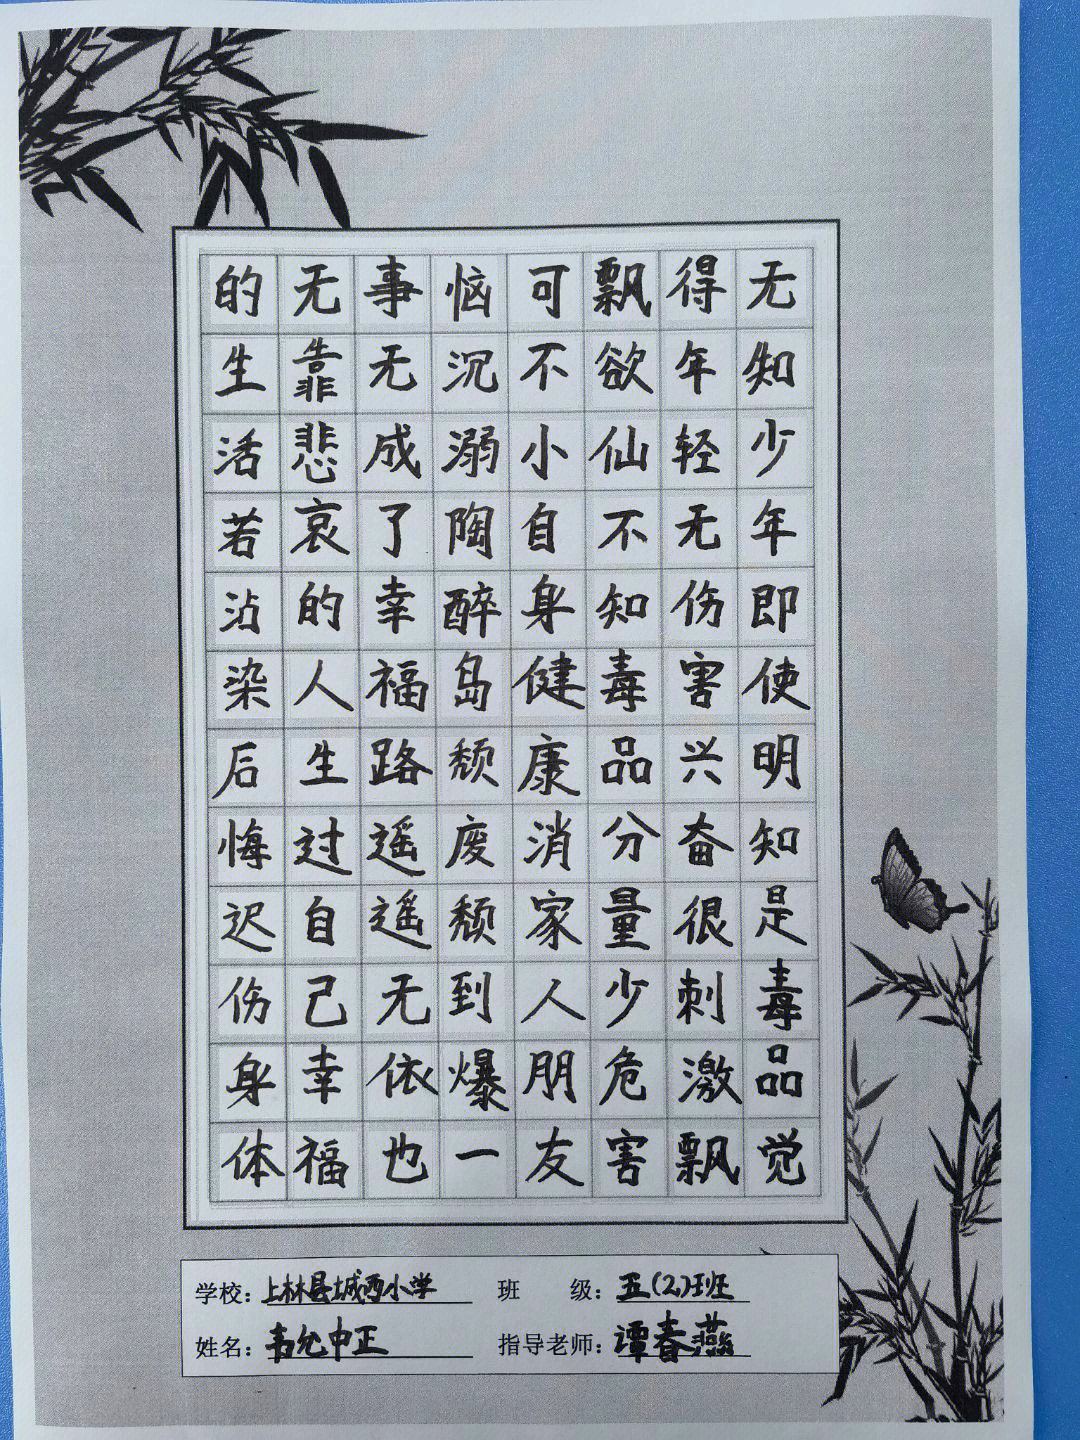 无知少年即使明知是毒品觉
得年轻无伤害兴奋很刺激飘
飘欲仙不知毒品分量少危害
可不小自身健康消家人朋友
恼沉溺陶醉岛颓废颓到爆一
事无成了幸福路遥遥无依也
无靠悲哀的人生过自己幸福
的生活若沾染后悔迟伤身体
学校：上林县城西小学 班 级：五(2)班
姓名：韦允中正 指导老师：谭春燕